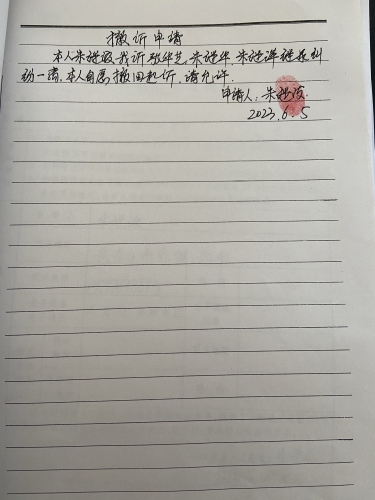 撤诉申请
本人朱继波,我诉张华芝、朱继华、朱继洋继承纠
纷一案,本人自愿撤回起诉,请允许.
申请人:朱继波.
2023.6.5